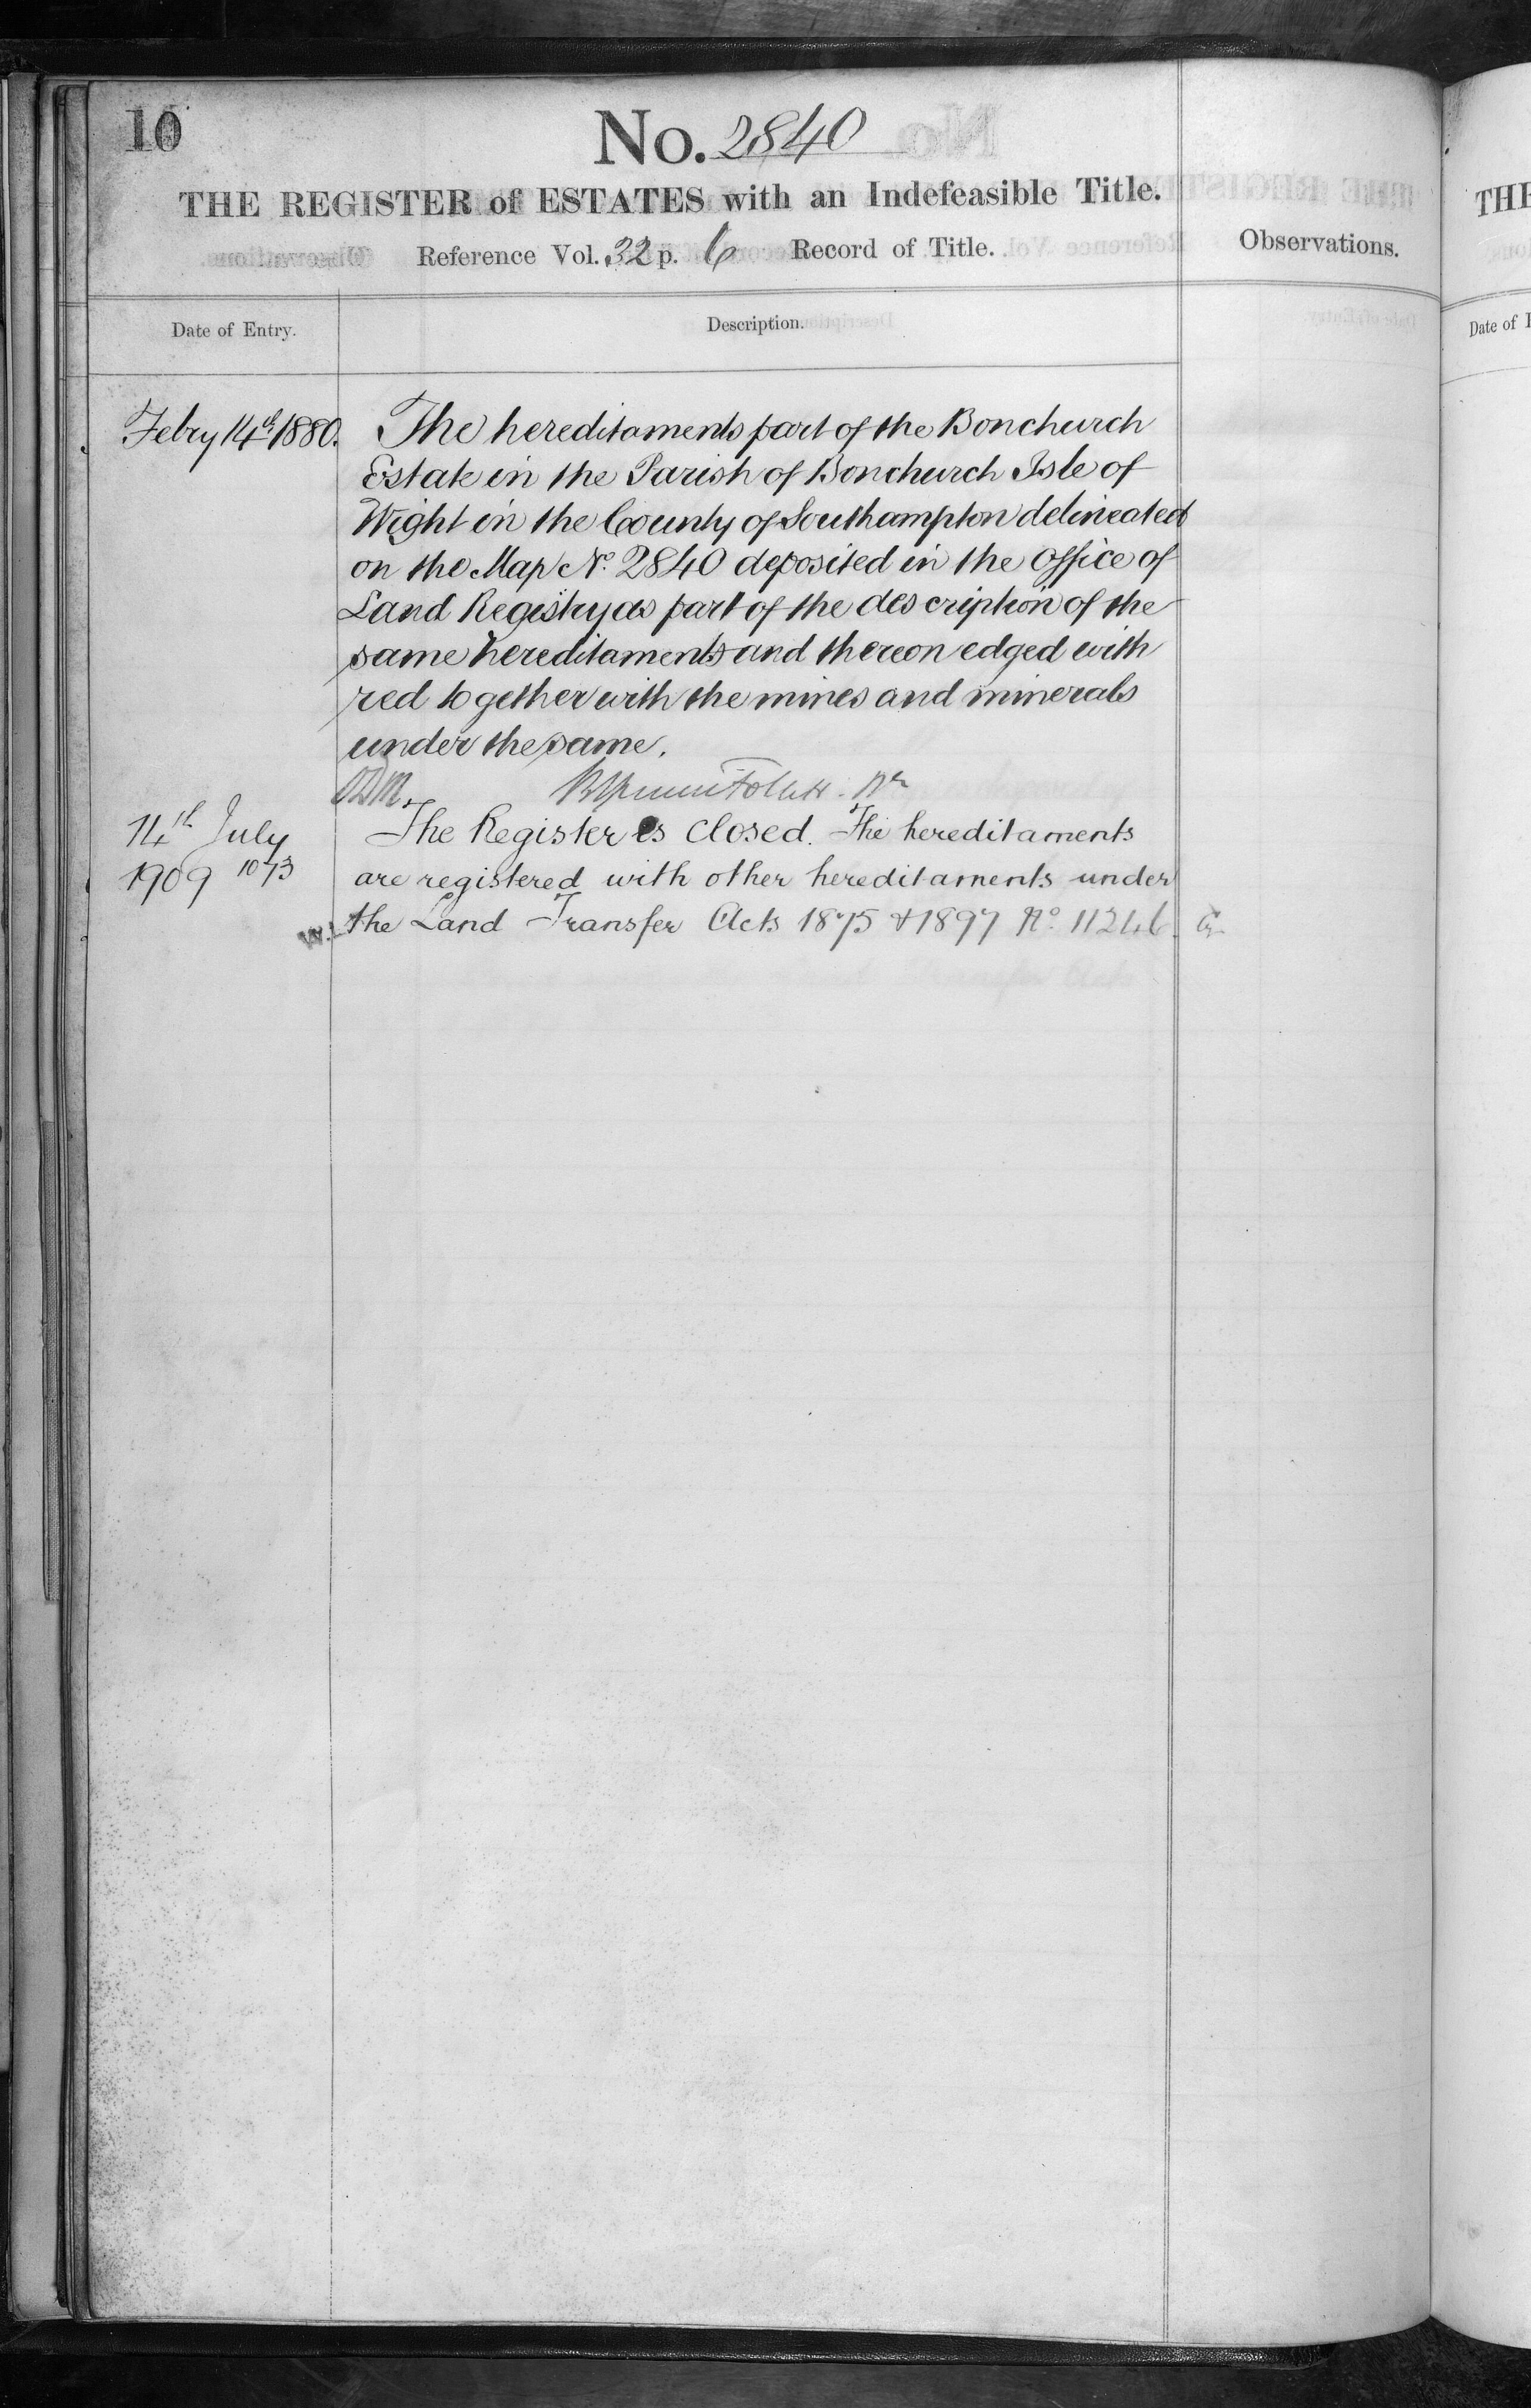 10
No. 2840
THE REGISTER of ESTATES with an Indefeasible Title.
Reference Vol. 32 p. 6 Record of Title.
Observations.
Date of Entry.
Description.
Febry 14th 1880.
The hereditaments part of the Bonchurch
Estate in the Parish of Bonchurch Isle of
Wight in the County of Southampton delineated
on the Map No. 2840 deposited in the office of
Land Registry as part of the description of the
same hereditaments and thereon edged with
red together with the mines and minerals
under the same.
14th July
1909
The Register is closed. The hereditaments
are registered with other hereditaments under
the Land Transfer Acts 1875 & 1897 No. 11246.
THE
Date of